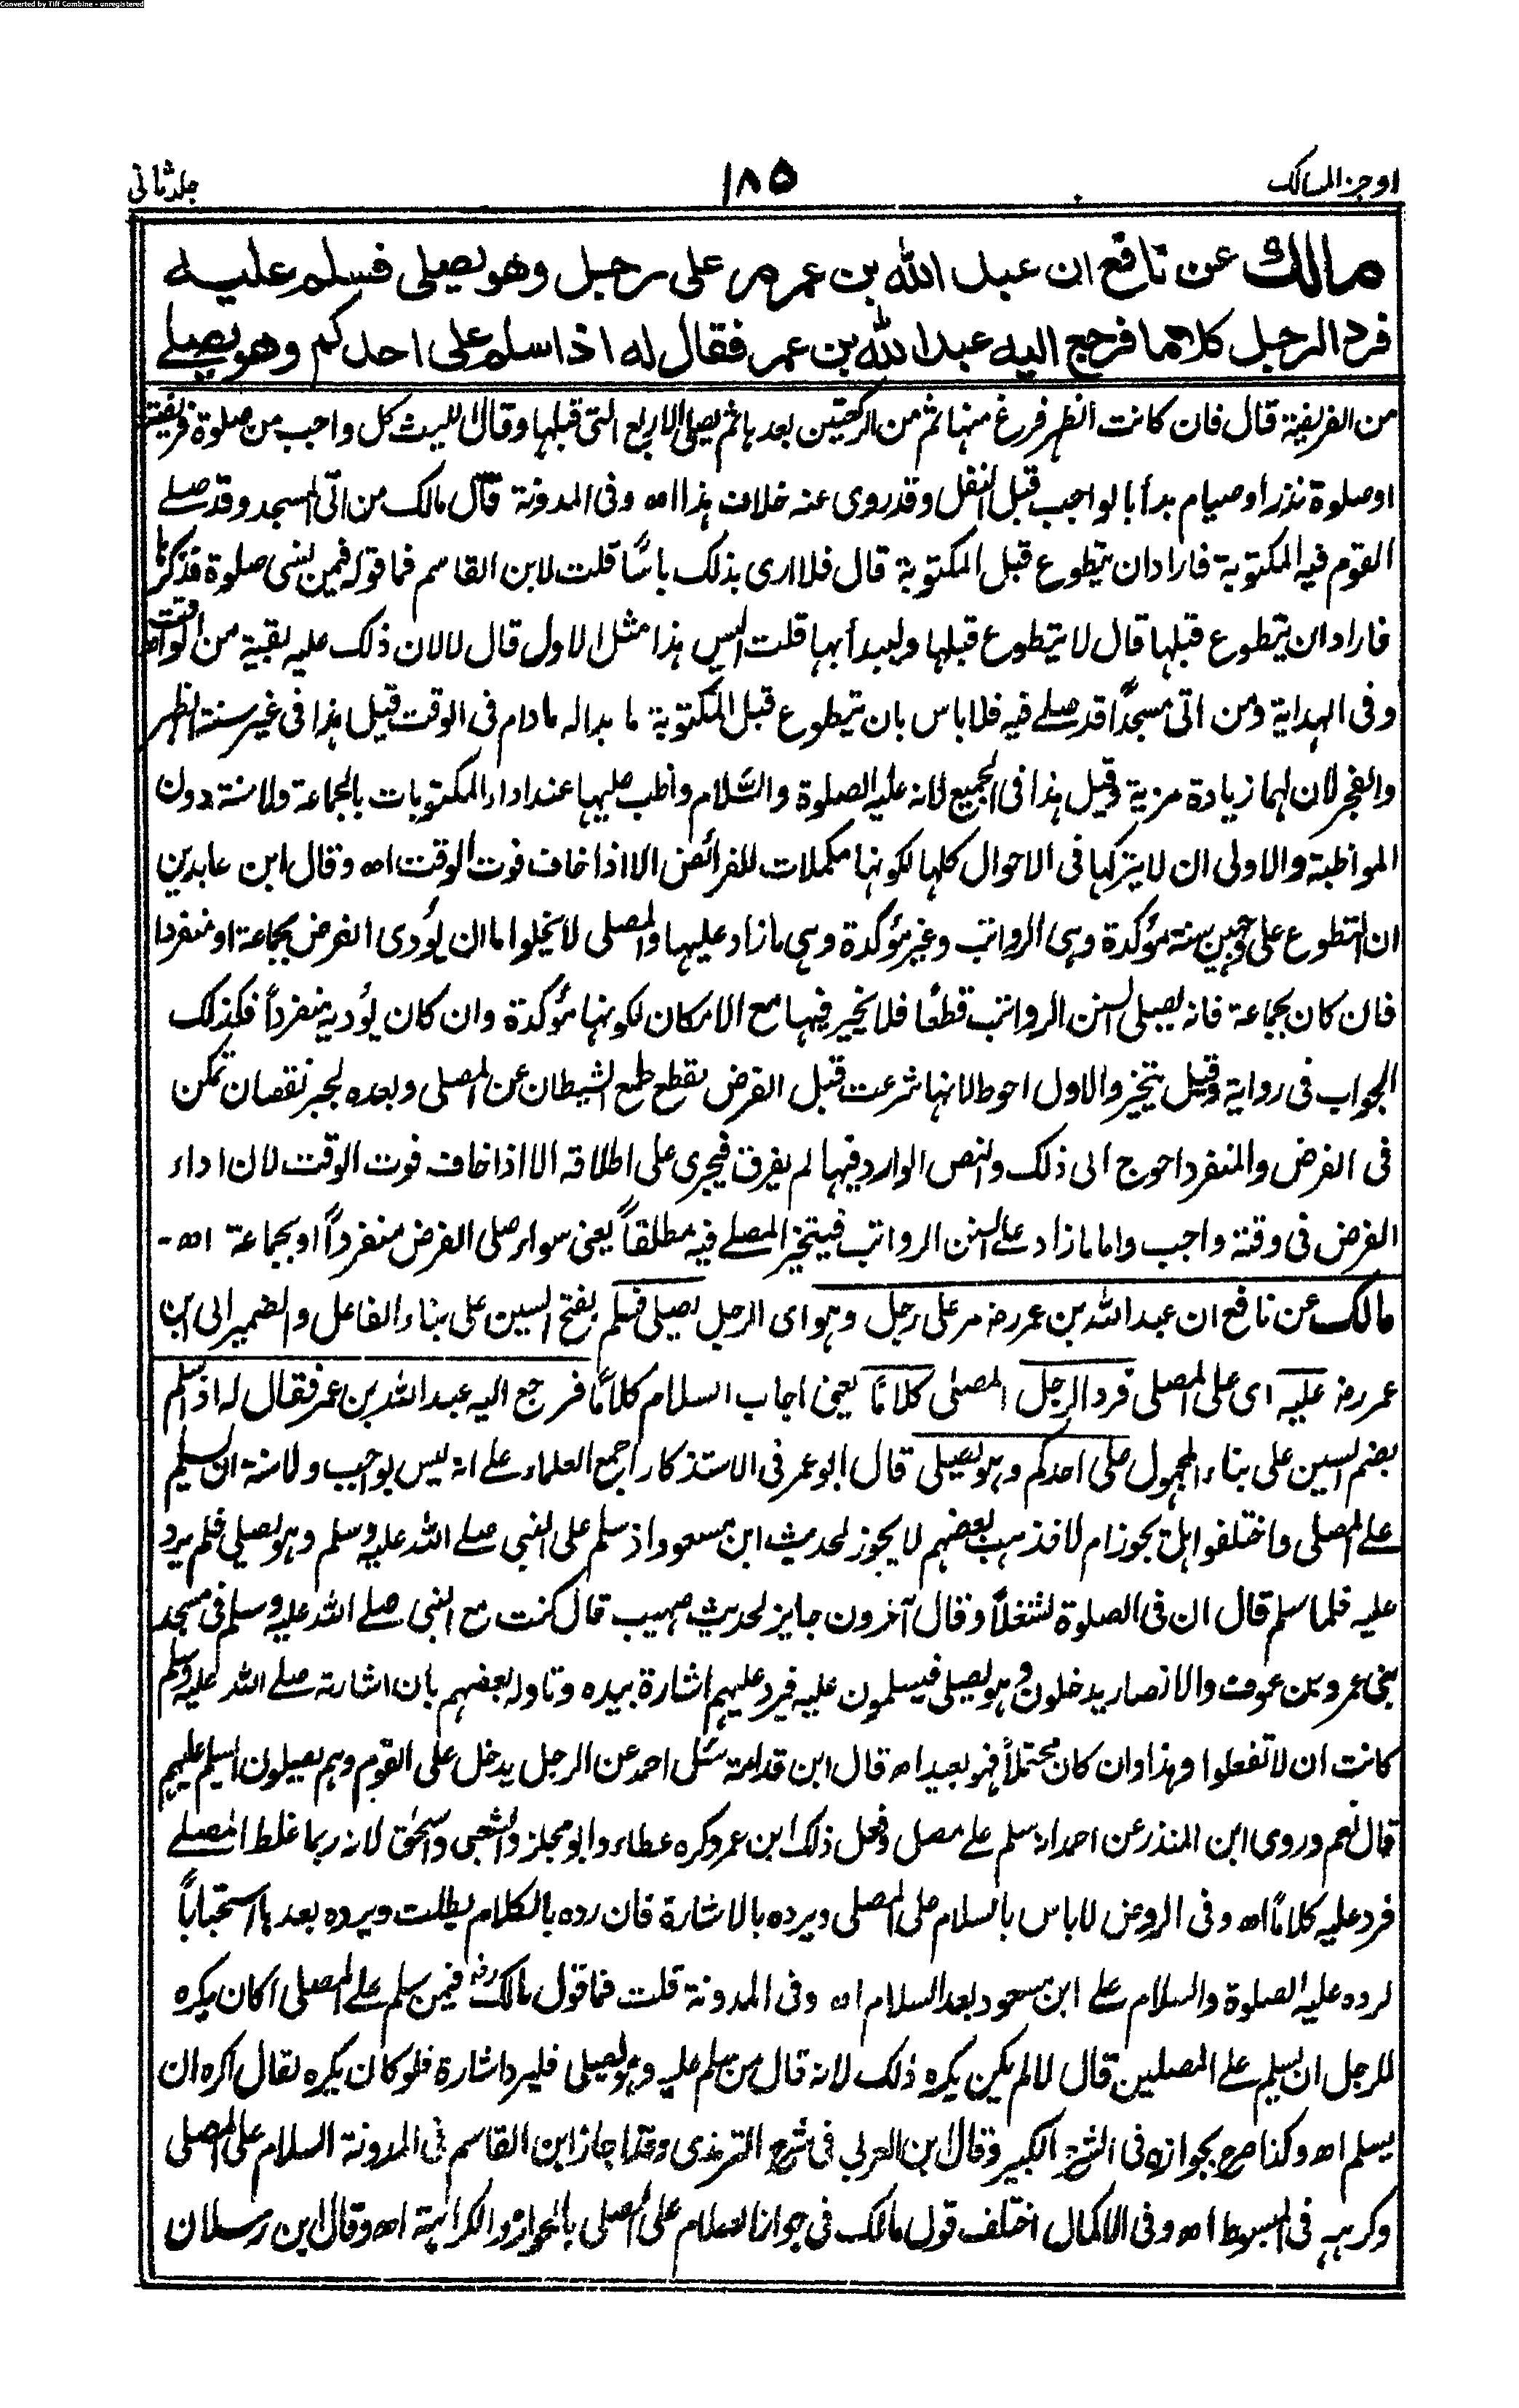 Converted by Tiff Combine - unregistered
اوجز المسالك ١٨٥ جلد ثانی
مالك عن نافع ان عبد الله بن عمر مر على رجل وهو يصلى فسلم عليه
فرد الرجل كلاما فرجع اليه عبد الله بن عمر فقال له اذا سلم على احدكم وهو يصلے
من الفريضة قال فان كانت الظهر فرغ منها ثم من الركعتين بعد ہا ثم يصلى الاربع التى قبلها وقال الليث كل واجب من صلوة فريضة
او صلوة نذر او صيام بدأ بالواجب قبل النفل وقد روى عنه خلاف ہذا اھ وفى المدونة قال مالك من اتى المسجد وقد صلے
القوم فيه المكتوبة فاراد ان يتطوع قبل المكتوبة قال فلا ارى بذلك باسًا قلت لابن القاسم فما قوله فيمن نسى صلوة فذكرہا
فاراد ان يتطوع قبلها قال لا يتطوع قبلها وليبدأ بها قلت اليس ہذا مثل الاول قال لا لان ذلك عليه بقية من الوقت اھ
وفى الہداية ومن اتى مسجدًا قد صلے فيه فلا باس بان يتطوع قبل المكتوبة ما بدا له ما دام فى الوقت قيل ہذا فى غير سنة الظہر
والفجر لان لہما زيادة مزية وقيل ہذا فى الجميع لانه عليه الصلوة والسّلام واظب عليہا عند اداء المكتوبات بالجماعة ولا سنة دون
المواظبة والاولى ان لا يتركہا فى الاحوال كلہا لكونہا مكملات للفرائض الا اذا خاف فوت الوقت اھ وقال ابن عابدين
ان التطوع على وجہين سنة مؤكدة وہى الرواتب وغير مؤكدة وہى ما زاد عليہا والمصلى لا يخلو اما ان يؤدى الفرض بجماعة او منفردا
فان كان بجماعة فانه يصلى السنن الرواتب قطعًا فلا يخير فيہا مع الامكان لكونہا مؤكدة وان كان يؤديه منفرداً فكذلك
الجواب فى رواية وقيل يتخير والاول احوط لانہا شرعت قبل الفرض لقطع طمع الشيطان عن المصلى وبعده لجبر نقصان تمكن
فى الفرض والمنفرد احوج الى ذلك والنص الوارد فيہا لم يفرق فيجرى على اطلاقه الا اذا خاف فوت الوقت لان اداء
الفرض فى وقته واجب واما ما زاد على السنن الرواتب فيتخير المصلے فيه مطلقاً يعنى سواء صلى الفرض منفرداً او بجماعة اھ -
مالك عن نافع ان عبد الله بن عمر رضہ مر على رجل وہو اى الرجل يصلى فسلم بفتح السين على بناء الفاعل والضمير الى ابن
عمر رضہ عليه اى على المصلى فرد الرجل المصلى كلامًا يعنى اجاب السلام كلامًا فرجع اليه عبد الله بن عمر فقال له اذا سلم
بضم السين على بناء المجہول على احدكم وہو يصلى قال ابو عمر فى الاستذكار اجمع العلماء علے انه ليس بواجب ولا سنة ان يسلم
علے المصلى واختلفوا ہل يجوز ام لا فذہب بعضہم لا يجوز لحديث ابن مسعود اذ سلم على النبى صلے الله عليه وسلم وہو يصلى فلم يرد
عليه فلما سلم قال ان فى الصلوة لشغلاً وقال آخرون جايز لحديث صہيب قال كنت مع النبى صلے الله عليه وسلم فى مسجد
بنى عمرو بن عوف والانصار يدخلون وہو يصلى فيسلمون عليه فيرد عليہم اشارة بيده وتاوله بعضہم بان اشارته صلے الله عليه وسلم
كانت ان لا تفعلوا وہذا وان كان محتملاً فہو بعيد اھ قال ابن قدامة سئل احمد عن الرجل يدخل على القوم وہم يصلون ايسلم عليہم
قال نعم وروى ابن المنذر عن احمد انه سلم علے مصل وفعل ذلك ابن عمر وكره عطاء وابو مجلز والشعبى واسحٰق لانه ربما غلط المصلے
فرد عليه كلامًا اھ وفى الروض لا باس بالسلام على المصلى ويرده بالاشارة فان رده بالكلام بطلت ويرده بعد ہا استحباباً
لرده عليه الصلوة والسلام علے ابن مسعود بعد السلام اھ وفى المدونة قلت فما قول مالك رضہ فيمن سلم علے المصلى اكان يكره
للرجل ان يسلم علے المصلين قال لا لم يكن يكره ذلك لانه قال من سلم عليه وہو يصلى فليرد اشارة فلو كان يكره لقال اكره ان
يسلم اھ وكذا صرح بجوازه فى الشرح الكبير وقال ابن العربى فى شرح الترمذى وقد اجاز ابن القاسم فى المدونة السلام على المصلى
وكرہه فى المبسوط اھ وفى الاكمال اختلف قول مالك فى جواز السلام على المصلى بالجواز والكراہة اھ وقال ابن رسلان